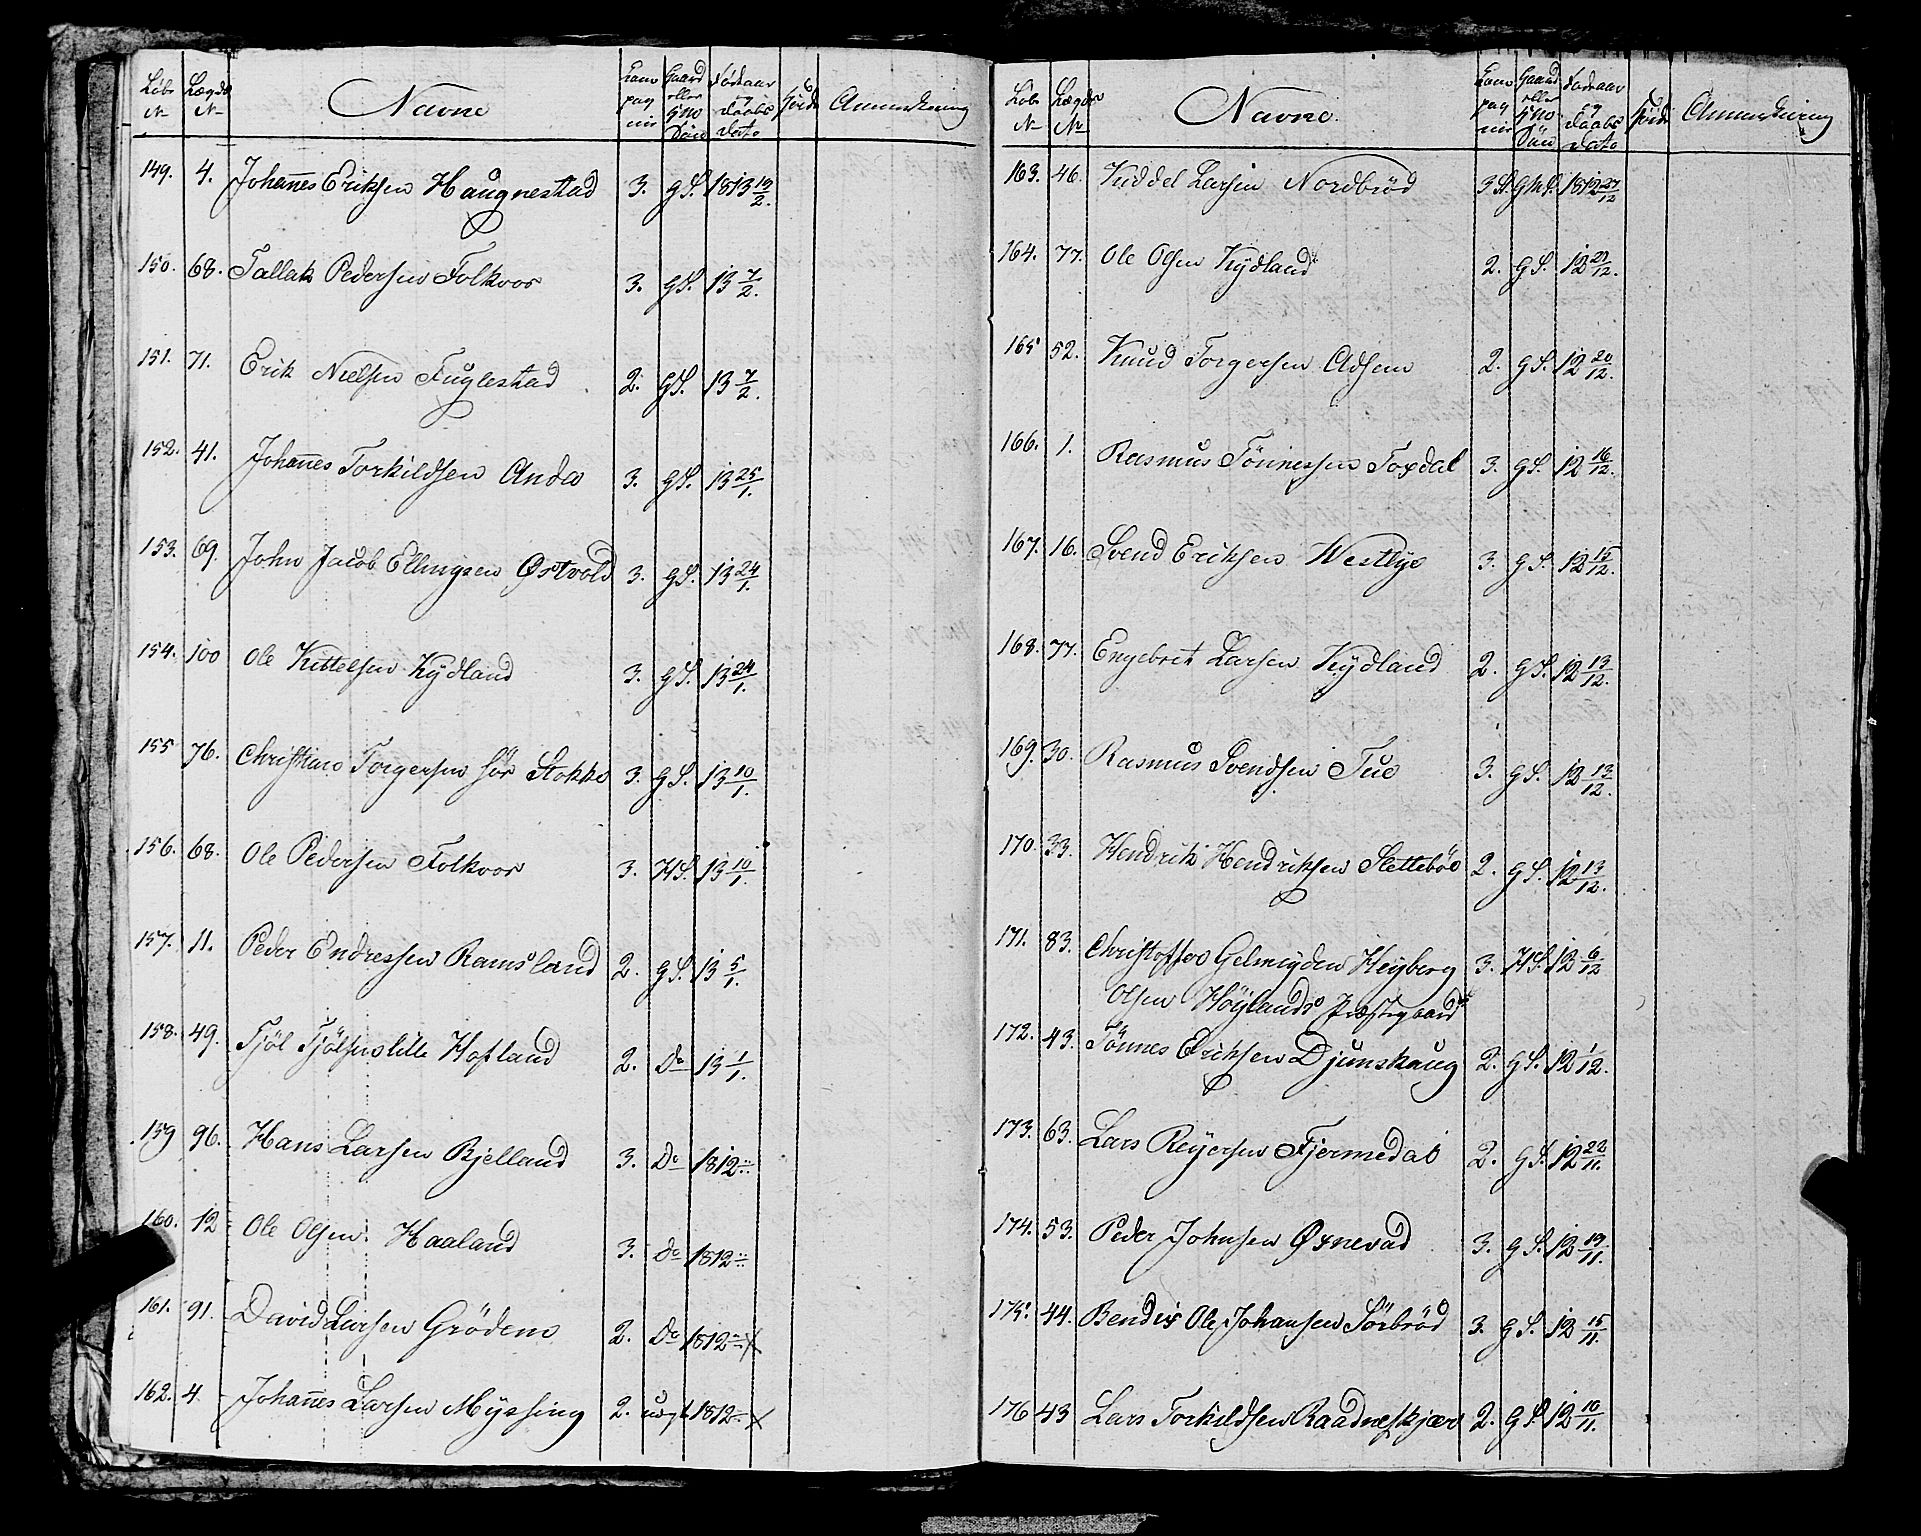 Løbe No Lægds No Navne Com pag nie Gaard eller Hmd Søn Fødeaar og Daabs Dato Høide Anmærkning
149. 4. Johannes Eriksen Haugnestad 3. GS. 1813 19/2.
150. 68. Tallak Pedersen Folkvor 3. GS. 13 7/2.
151. 71. Erik Nielsen Fuglestad 2. GS. 13 7/2.
152. 41. Johannes Torkildsen Anda 3. GS. 13 25/1.
153. 69. John Jacob Ellingsen Østvold 3. GS. 13 24/1.
154. 100 Ole Kittelsen Kydland 3. GS. 13 24/1.
155 76. Christian Torgersen sør Stokke 3. GS. 13 10/1.
156. 68. Ole Pedersen Folkvor 3. HS. 13 10/1.
157. 11. Peder Endressen Ramsland 2. GS. 13 5/1.
158. 49. Tjøl Tjølsen lille Hofland 2. Do 13 1/1.
159 96. Hans Larsen Bjelland 3. Do 1812
160. 12 Ole Olsen Haaland 3. Do 1812
161. 91. David Larsen Grödem 2. Do 1812 x
162. 4. Johannes Larsen Myssing 2. udgt 1812 x
Løbe No Lægds No Navne Com pag nie Gaard eller Hmd Søn Fødeaar og Daabs Dato Høide Anmærkning
163. 46. Kiddel Larsen Nordbröd 3. GMS. 1812 27/12
164. 77. Ole Olsen Kydland 2. GS. 12 21/12.
165 52. Knud Torgersen Adsem 2. GS. 12 20/12.
166. 1. Rasmus Tönnessen Toxdal 3. GS. 12 16/12.
167. 16. Svend Eriksen Westlye 3. GS. 12 15/12.
168. 77. Engebret Larsen Kydland 2. GS. 12 13/12.
169. 30. Rasmus Svendsen Tue 3. GS. 12 13/12.
170. 33. Hendrik Hendriksen Sletteböe 2. GS. 12 13/12.
171. 83. Christoffer Gelmeyden Heyberg 3. HS. 12 6/12
Olsen Höylands Præstegaard
172. 43. Tönnes Eriksen Djunskaug 2. GS. 12 1/12.
173. 63. Lars Reyersen Fjermedal 2. GS. 12 22/11.
174. 53. Peder Johnsen Øxnevad 3. GS. 12 19/11.
175. 44. Bendix Ole Johansen Sörbröd 3. GS. 12 15/11.
176 43 Lars Torkildsen Raadneskjær 2. GS. 12 10/11.